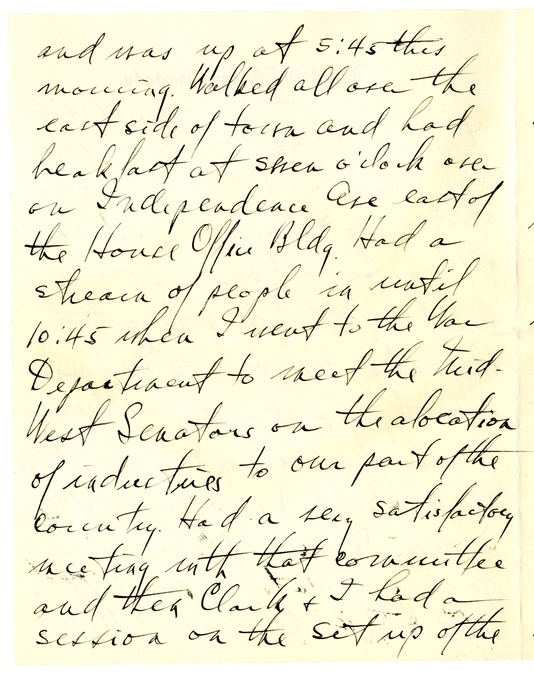 and was up at 5:45 this
morning. Walked all over the
east side of town and had
breakfast at seven o'clock over
on Independence Ave east of
the House Office Bldg. Had a
stream of people in until
10:45 when I went to the War
Department to meet the Mid-
West Senators on the alocation
of industries to our part of the
country. Had a very satisfactory
meeting with that committee
and then Clark + I had a
session on the set up of the